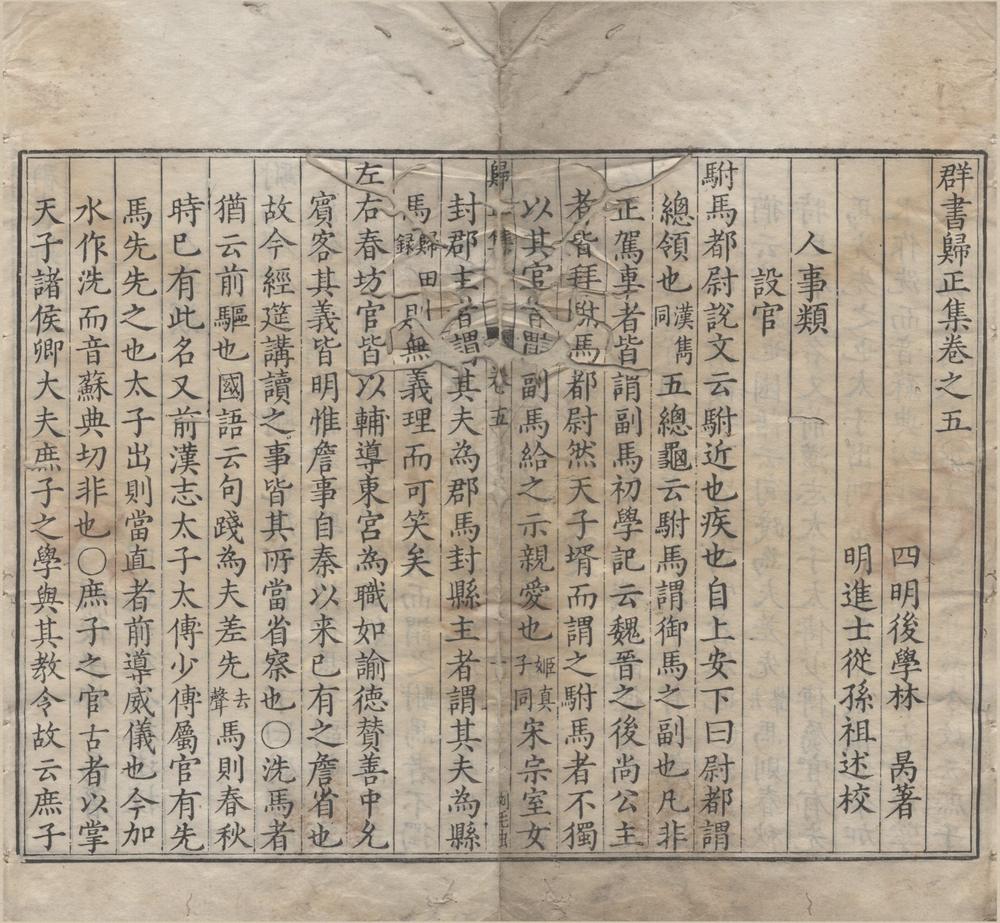 群書歸正集卷之五
四明後學林 昺著
明進士從孫祖述校
人事類
設官
駙馬都尉說文云駙近也疾也自上安下曰尉都謂
總領也漢雋同五總龜云駙馬謂御馬之副也凡非
正駕車者皆謂副馬初學記云魏晉之後尚公主
者皆拜駙馬都尉然天子壻而謂之駙馬者不獨
以其官副馬給之示親愛也姬真子同宋宗室女
封郡主者謂其夫為郡馬封縣主者謂其夫為縣
歸 卷五
馬歸田録則無義理而可笑矣
左右春坊官皆以輔導東宮為職如諭德贊善中允
賓客其義皆明惟詹事自秦以来已有之詹省也
故今經筵講讀之事皆其所當省察也〇洗馬者
猶云前驅也國語云句踐為夫差先去聲馬則春秋
時已有此名又前漢志太子太傅少傅屬官有先
馬先先之也太子出則當直者前導威儀也今加
水作洗而音蘇典切非也〇庶子之官古者以掌
天子諸侯卿大夫庶子之學與其教令故云庶子